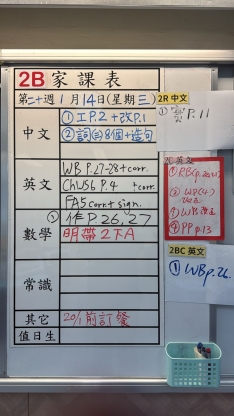 2B 家課表
第二十週 1月14日(星期三)
中文
① 工P.2 + 改P.1
② 詞(三)8個 + 造句
英文
WB P.27-28 + corr.
Ch.U5b P.4 + corr.
FA5 corr + sign.
數學
① 作P.26, 27
明帶2下A
常識
其它
20/1前訂餐
值日生
2R 中文
P.11
英文
④ PP p.13
2BC 英文
① WB p.26